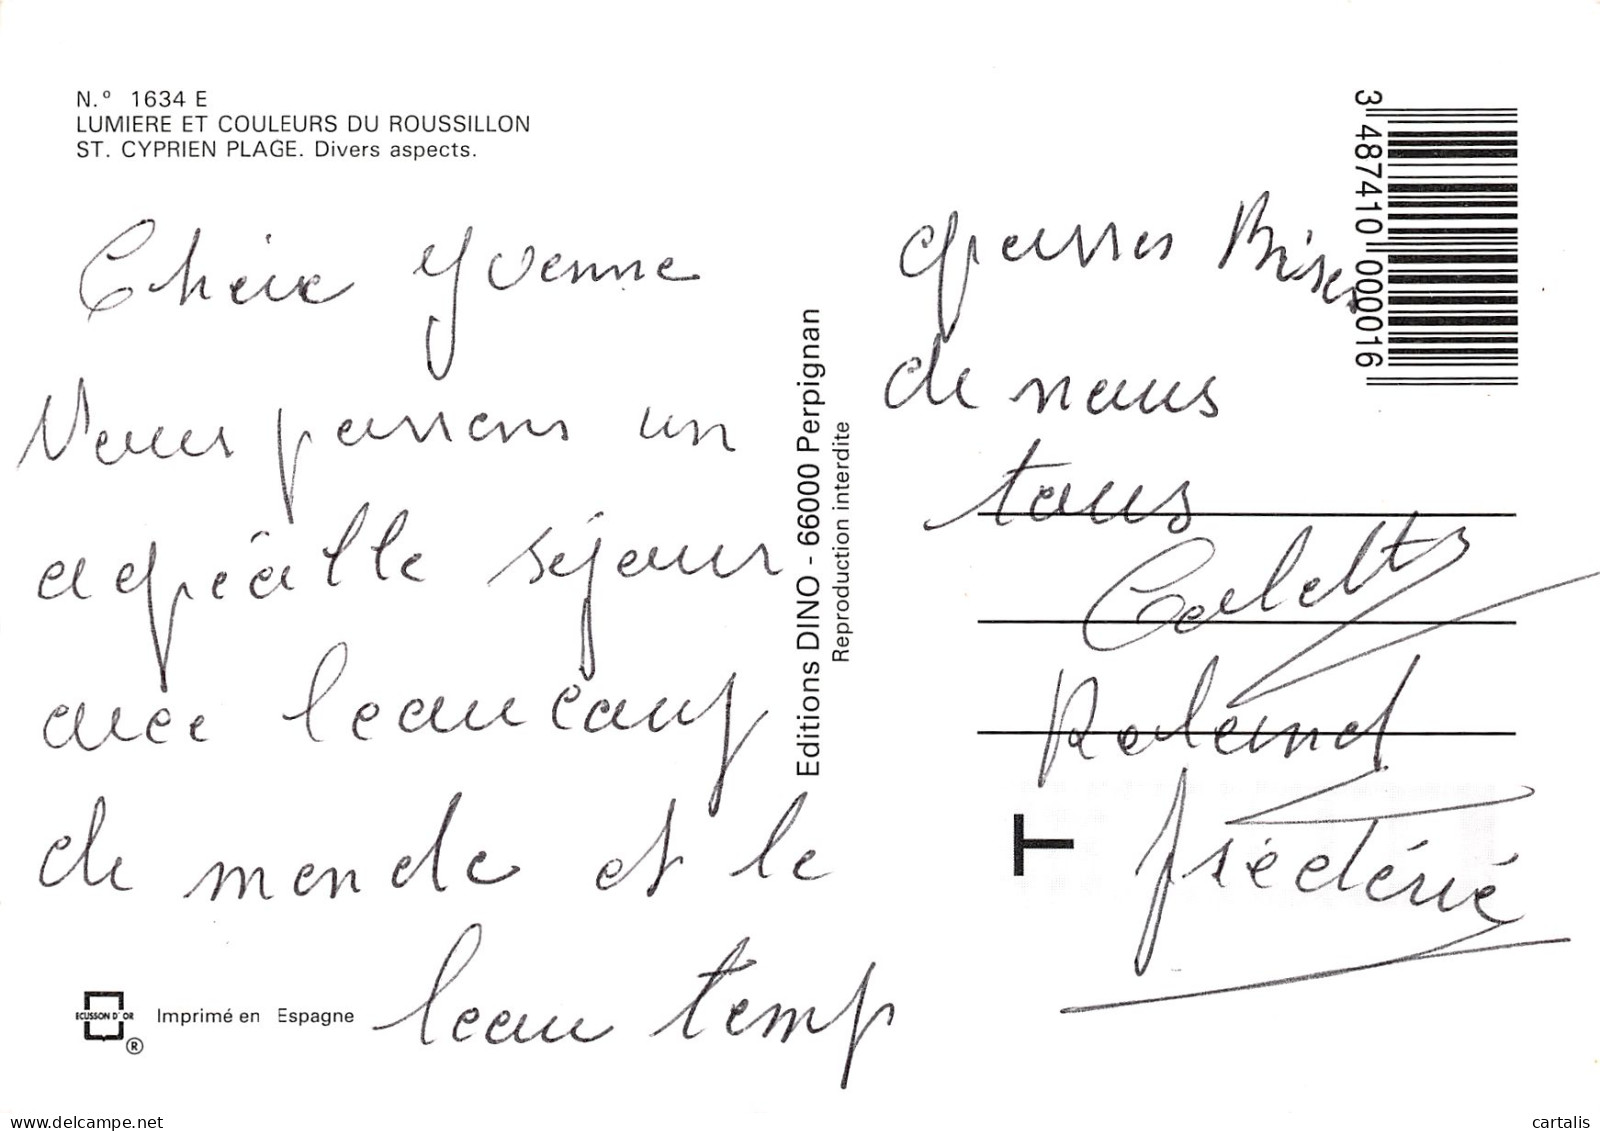 N.º 1634 E
LUMIERE ET COULEURS DU ROUSSILLON
ST. CYPRIEN PLAGE. Divers aspects.
Chére Yvonne
Nous passons un
agréâlle séjour
avec beaucoup
de monde et le
beau temp
ECUSSON D'OR
®
Imprimé en Espagne
Editions DINO - 66000 Perpignan
Reproduction interdite
3 487410 000016
grosses Bises
de nous
tous
Colette
Roland
frédéric
T
delcampe.net
cartalis